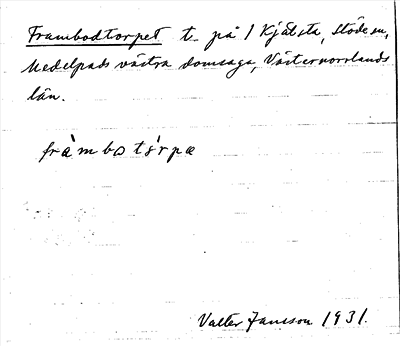 Frambodtorpet t. på 1 Kjälsta, Stöde sn,
Medelpads västra domsaga, Västernorrlands
län.
fràmbotórpæ
Valter Jansson 1931.